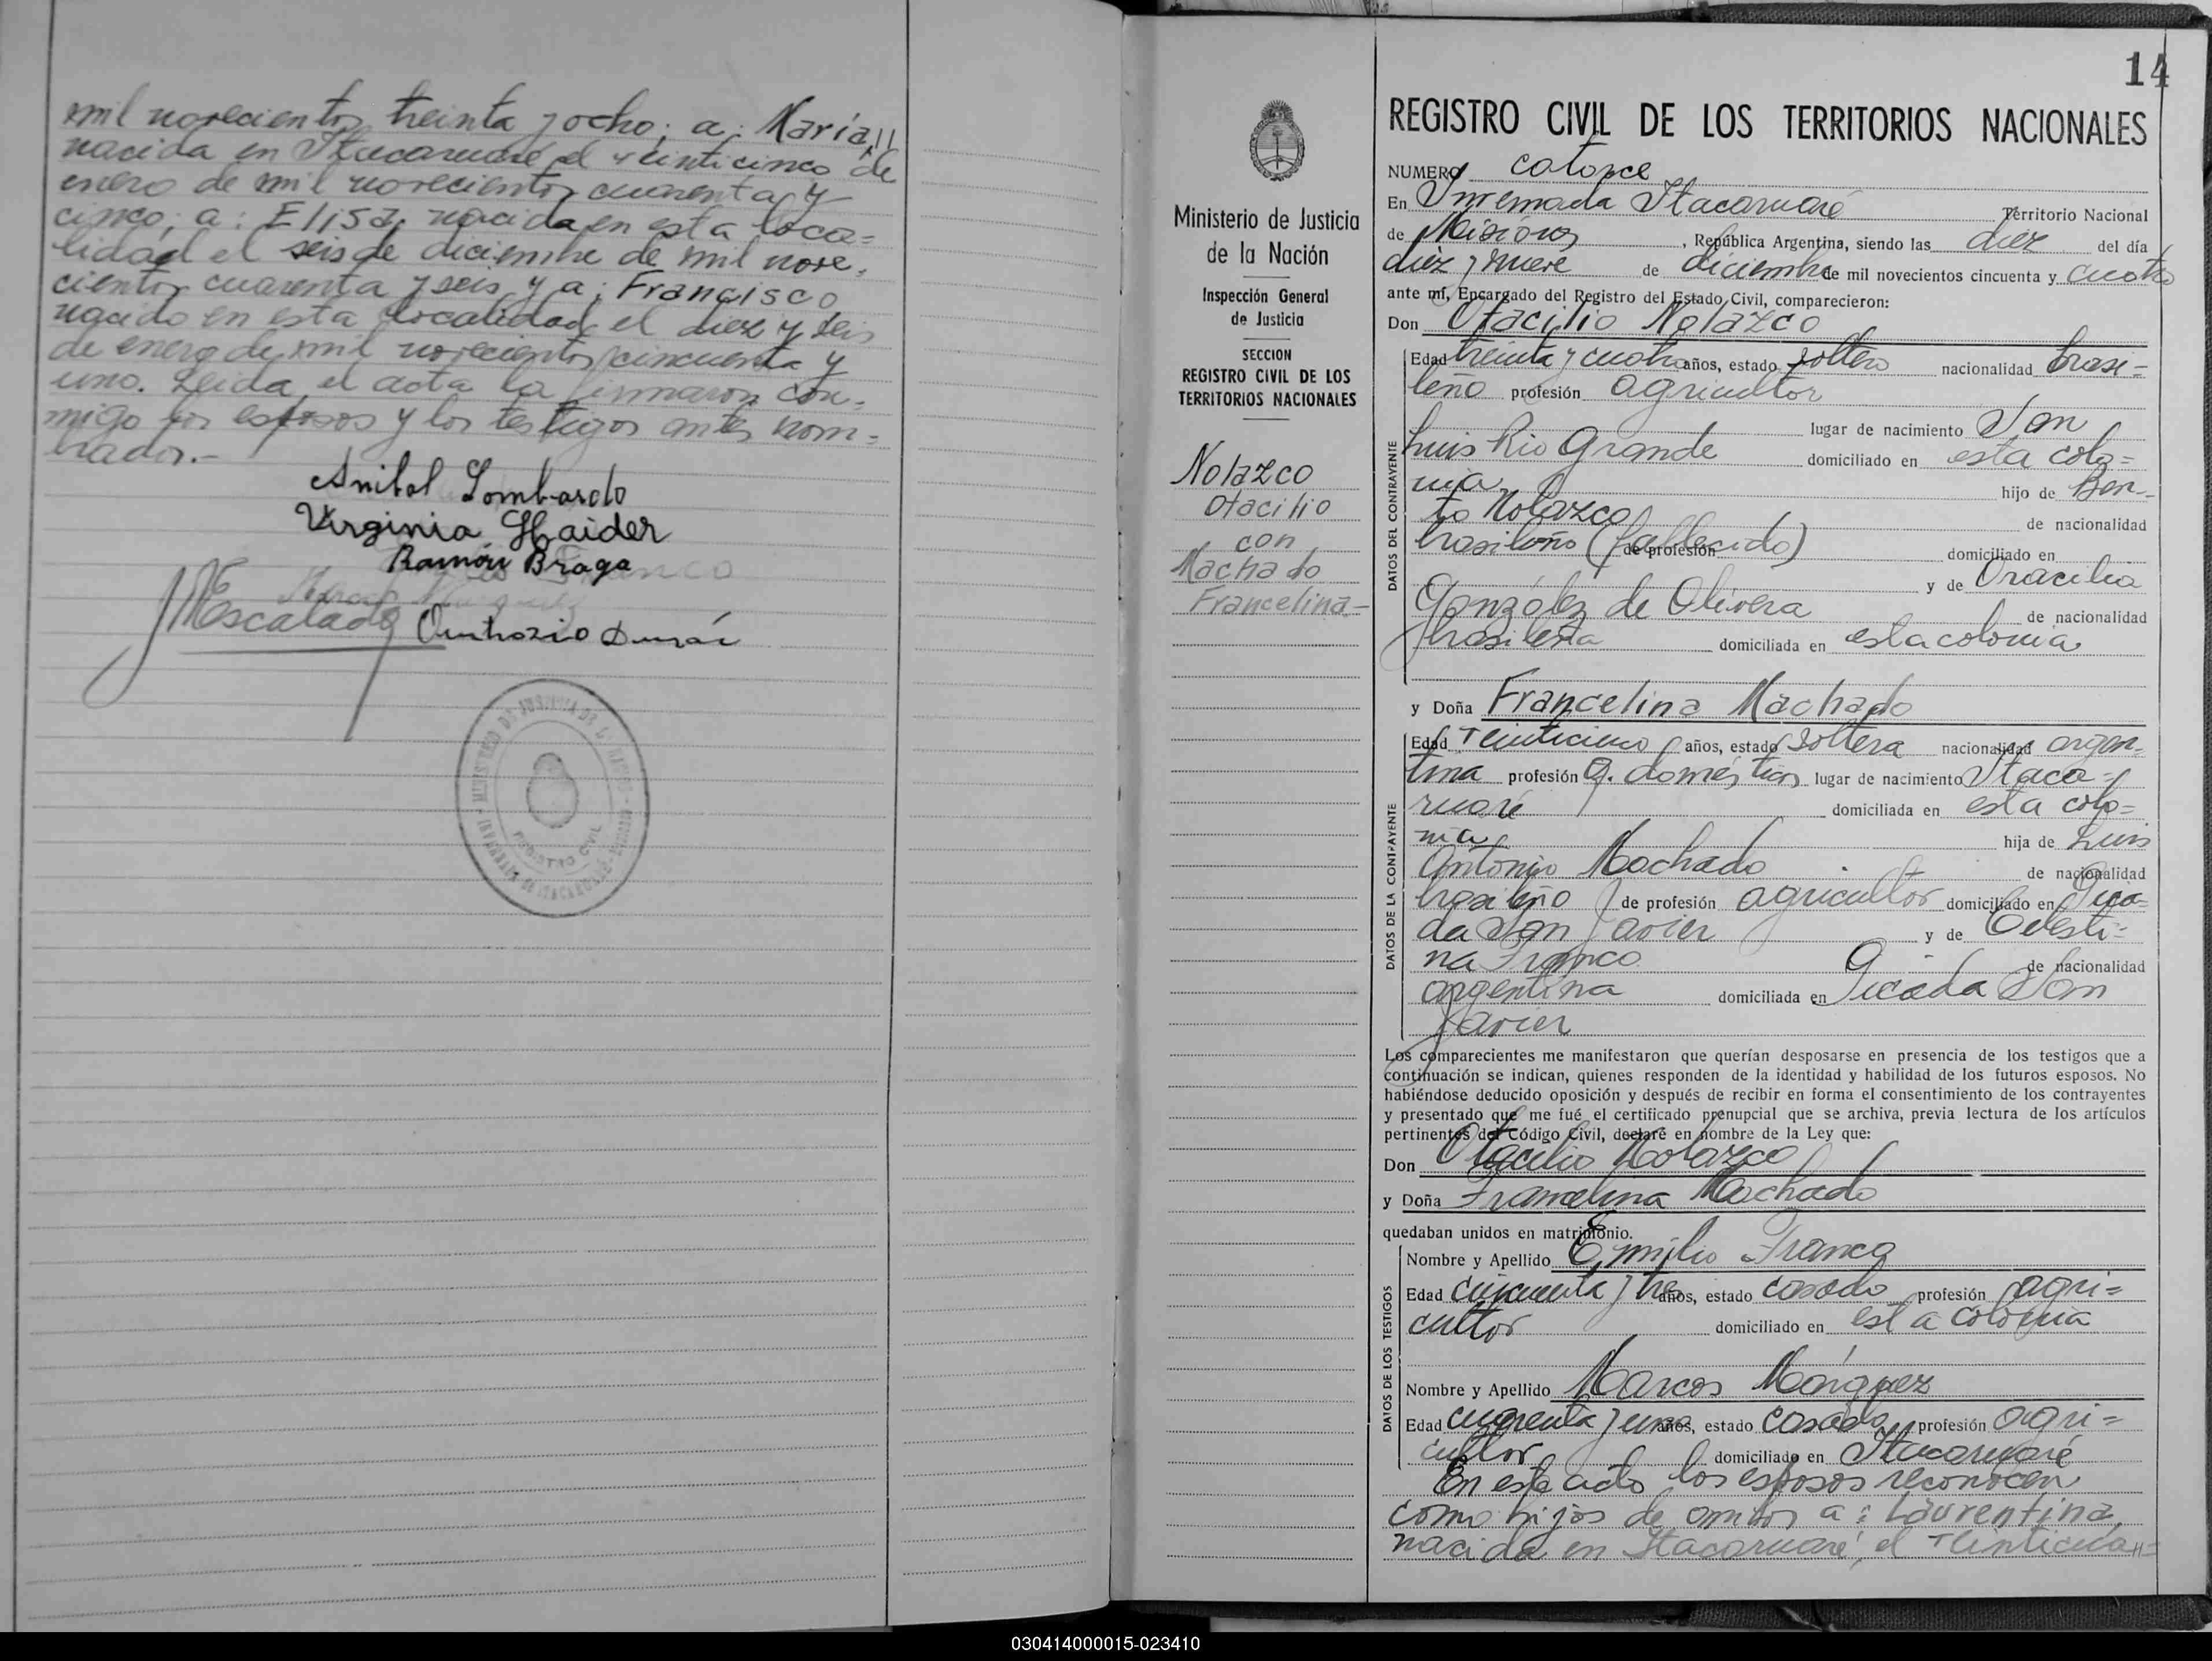 mil novecientos treinta y ocho; a: María,
nacida en Itacaruaré el veinticinco de
enero de mil novecientos cuarenta y
cinco; a: Elisa, nacida en esta loca=
lidad el seis de diciembre de mil nove=
cientos cuarenta y seis y a: Francisco
nacido en esta localidad el diez y seis
de enero de mil novecientos cincuenta y
uno. Leida el acta la firmaron con=
migo los esposos y los testigos antes nom=
brados.-
Anibal Lombardo
Virginia Haider
Ramón Braga
MEscalada
MINISTERIO DE JUSTICIA DE LA NACION
REGISTRO CIVIL
14
Ministerio de Justicia
de la Nación
Inspección General
de Justicia
SECCION
REGISTRO CIVIL DE LOS
TERRITORIOS NACIONALES
Nolazco
Otacilio
con
Machado
Francelina-
REGISTRO CIVIL DE LOS TERRITORIOS NACIONALES
NUMERO catorce
En Invernada Itacaruaré Territorio Nacional
de Misiones, República Argentina, siendo las diez del día
diez y nueve de diciembre de mil novecientos cincuenta y cuatro
ante mí, Encargado del Registro del Estado Civil, comparecieron:
Don Otacilio Nolazco
Edad treinta y cuatro años, estado soltero nacionalidad brasi=
leño profesión agricultor
lugar de nacimiento San
Luis Rio Grande domiciliado en esta colo=
nia hijo de Ben-
to Nolazco de nacionalidad
brasileño (fallecido) de profesión domiciliado en
y de Oracilia
González de Olivera de nacionalidad
brasileña domiciliada en esta colonia
y Doña Francelina Machado
Edad veinticinco años, estado soltera nacionalidad argen=
tina profesión q. domésticos lugar de nacimiento Itaca=
ruaré domiciliada en esta colo=
nia hija de Luis
Antonio Machado de nacionalidad
brasileño de profesión agricultor domiciliado en Pica=
da San Javier y de Celesti=
na Franco de nacionalidad
argentina domiciliada en Picada San
Javier
Los comparecientes me manifestaron que querían desposarse en presencia de los testigos que a
continuación se indican, quienes responden de la identidad y habilidad de los futuros esposos. No
habiéndose deducido oposición y después de recibir en forma el consentimiento de los contrayentes
y presentado que me fué el certificado prenupcial que se archiva, previa lectura de los artículos
pertinentes del Código Civil, declaré en nombre de la Ley que:
Don Otacilio Nolazco
y Doña Francelina Machado
quedaban unidos en matrimonio.
Nombre y Apellido Emilio Franco
Edad cincuenta y tres años, estado casado profesión agri=
cultor domiciliado en esta colonia
Nombre y Apellido Marcos Márquez
Edad cuarenta y uno años, estado casado profesión agri=
cultor domiciliado en Itacaruaré
En este acto los esposos reconocen
como hijos de ambos a: Laurentina,
nacida en Itacaruaré, el
DATOS DEL CONTRAYENTE
DATOS DE LA CONTRAYENTE
DATOS DE LOS TESTIGOS
030414000015-023410